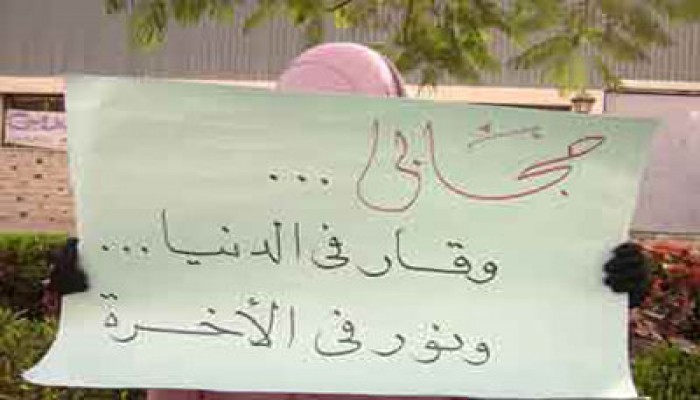 حجابى ...
وقار فى الدنيا ...
ونور فى الأخرة